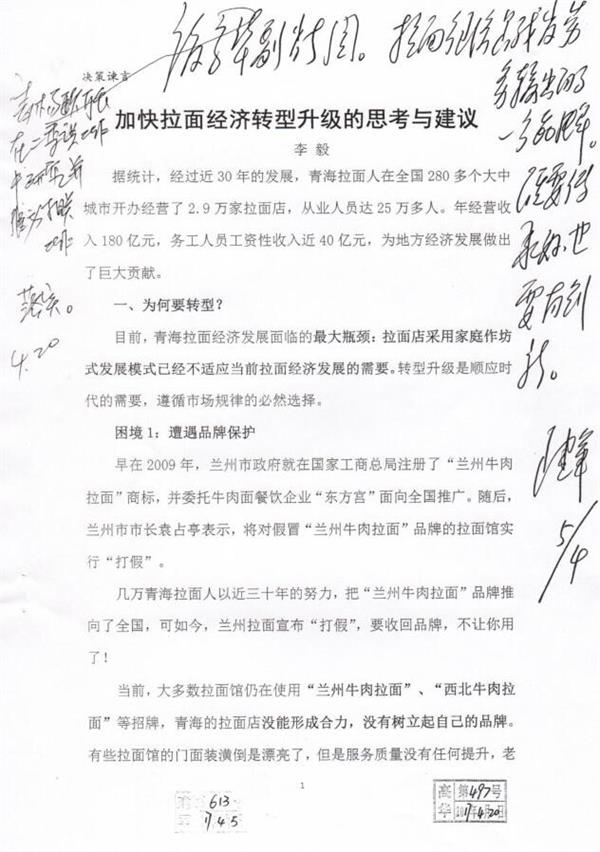 决策谏言
加快拉面经济转型升级的思考与建议
李 毅
据统计，经过近 30 年的发展，青海拉面人在全国 280 多个大中
城市开办经营了 2.9 万家拉面店，从业人员达 25 万多人。年经营收
入 180 亿元，务工人员工资性收入近 40 亿元，为地方经济发展做出
了巨大贡献。
一、为何要转型？
目前，青海拉面经济发展面临的最大瓶颈：拉面店采用家庭作坊
式发展模式已经不适应当前拉面经济发展的需要。转型升级是顺应时
代的需要，遵循市场规律的必然选择。
困境 1：遭遇品牌保护
早在 2009 年，兰州市政府就在国家工商总局注册了“兰州牛肉
拉面”商标，并委托牛肉面餐饮企业“东方宫”面向全国推广。随后，
兰州市市长袁占亭表示，将对假冒“兰州牛肉拉面”品牌的拉面馆实
行“打假”。
几万青海拉面人以近三十年的努力，把“兰州牛肉拉面”品牌推
向了全国，可如今，兰州拉面宣布“打假”，要收回品牌，不让你用
了！
当前，大多数拉面馆仍在使用“兰州牛肉拉面”、“西北牛肉拉
面”等招牌，青海的拉面店没能形成合力，没有树立起自己的品牌。
有些拉面馆的门面装潢倒是漂亮了，但是服务质量没有任何提升，老
1
落实。
4.20
要有创
新。
5/4
613
17.4.5
高华
第497号